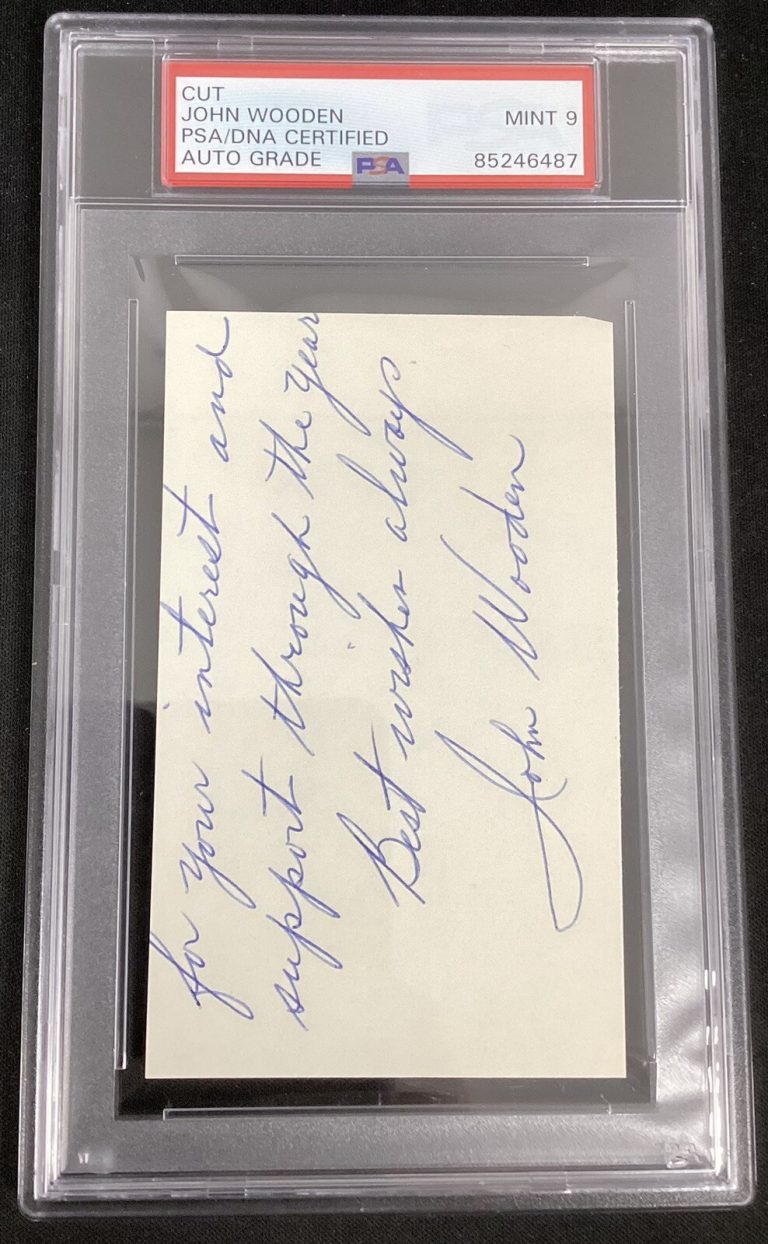 CUT
JOHN WOODEN
PSA/DNA CERTIFIED
AUTO GRADE
MINT 9
85246487
PSA
for your interest and
support through the year
Best wishes always.
John Wooden